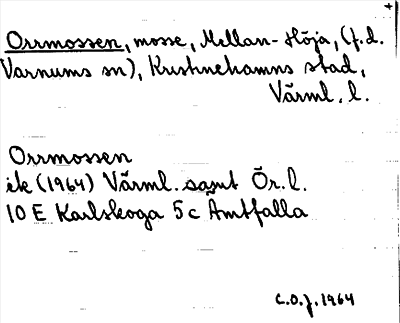 Orrmossen, mosse, Mellan-Höja, (f.d.
Varnums sn), Kristinehamns stad,
Värml. l.
Orrmossen
ek (1964) Värml. samt Ör. l.
10 E Karlskoga 5c Åmtfalla
C.O.J. 1964